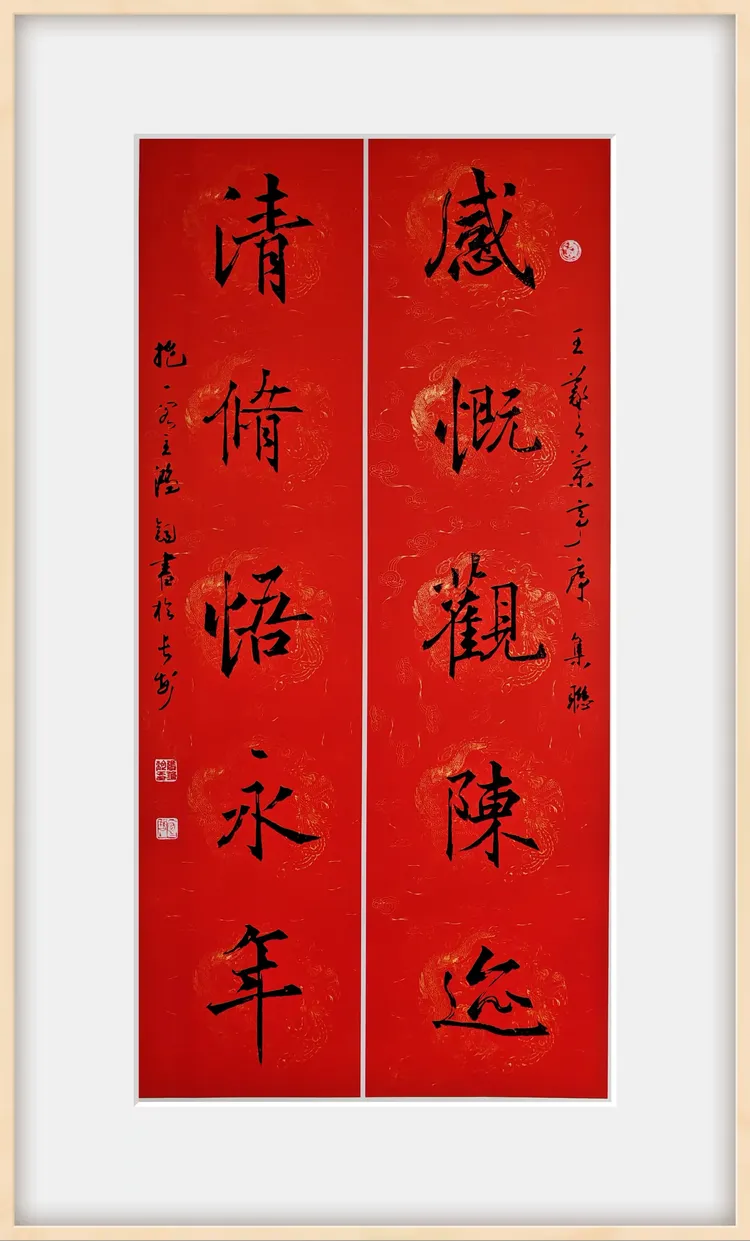 感慨觀陳迹
王羲之蘭亭序 集聯
清脩悟永年
抱一 主 書於長安